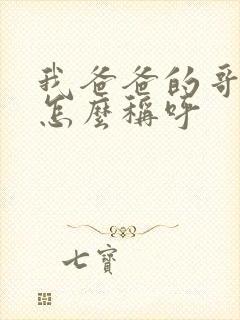 我爸爸的哥
怎麼稱呼
七寶